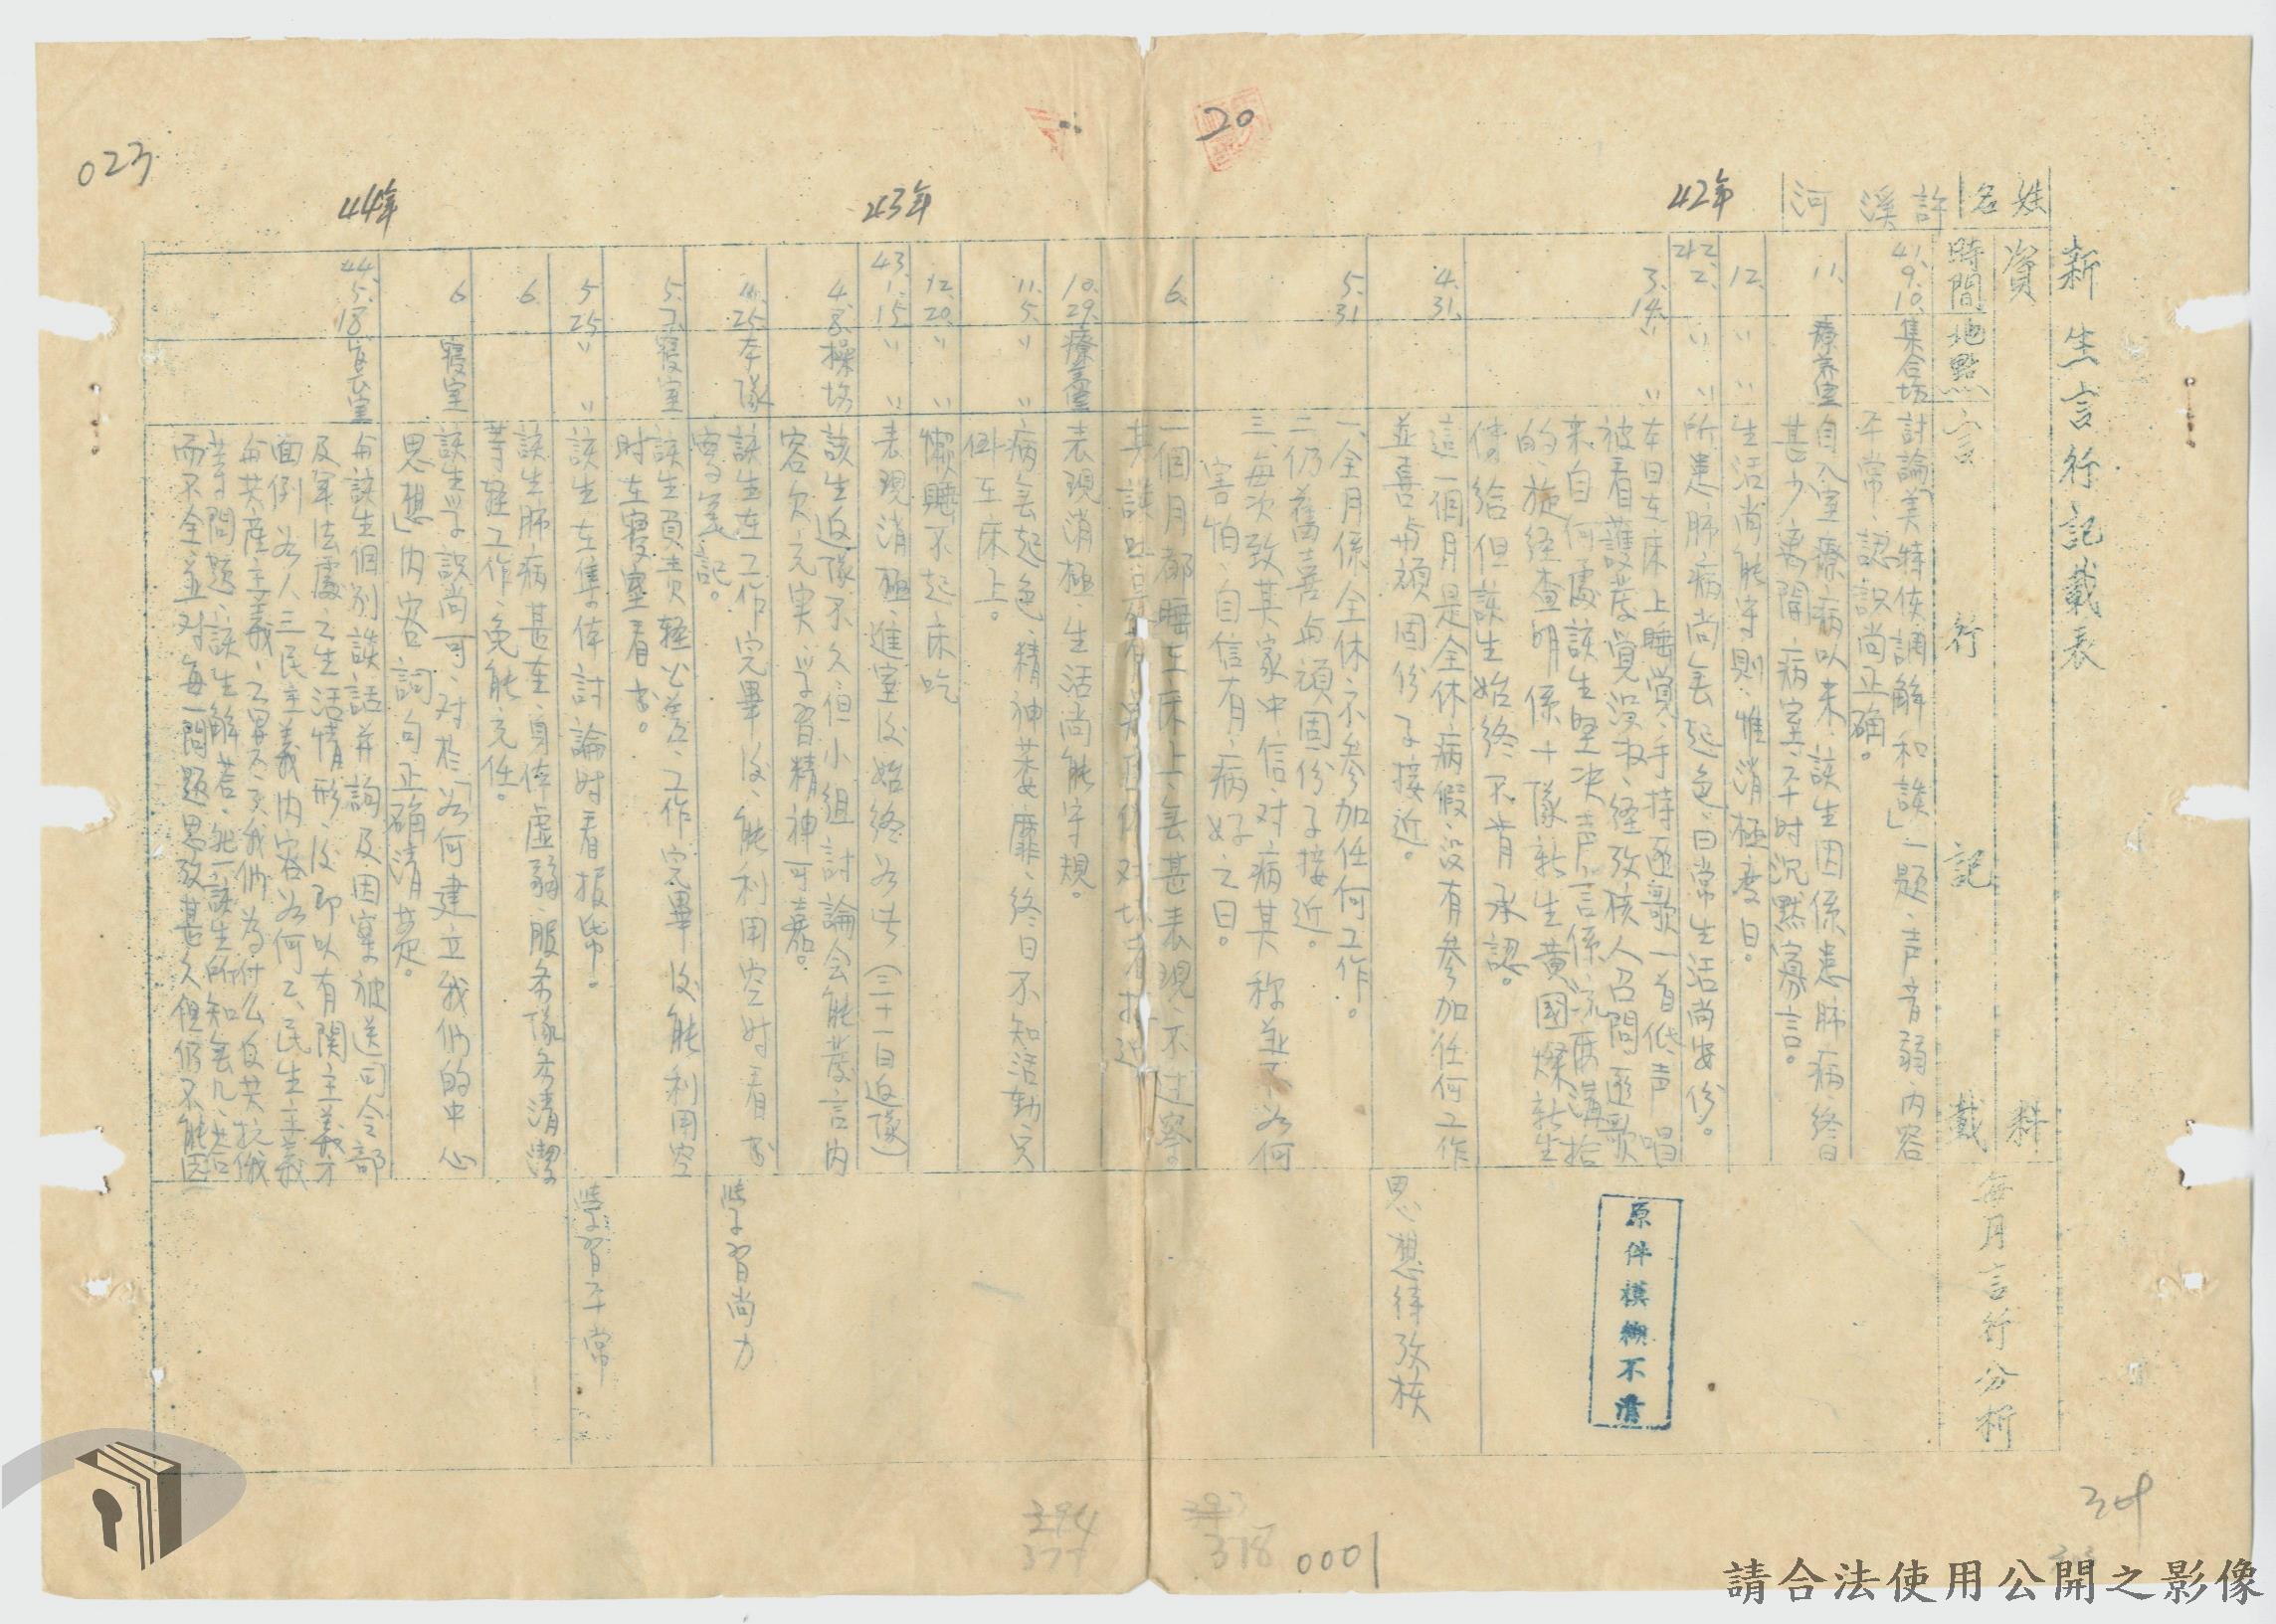 新生言行記載表
姓名
許溪河
資料
時間
地點
言行記載
每月言行分析
41.9.10.
集合場
討論「美特使調解和談」一題、声音弱、内容
平常、認識尚正确。
11.
療养室
自入室療病以来、該生因係患肺病、終日
甚少离開病室、平时沉默寡言。
12.
〃 〃
生活尚能守則、惟消極度日。
42年
42.2.
〃 〃
所患肺病尚無起色、日常生活尚安份。
3.14.
〃 〃
本日在床上睡覚、手持匪歌一首低声唱
被看護發覚沒收、経攷核人召問匪歌
来自何處該生堅决声言係流廁溝拾
的、旋経查明係十隊新生黄國燦新生
傳給但該生始終不肯承認。
4.31.
這一個月是全休病假、没有參加任何工作
並喜与頑固份子接近。
思想待攷核
5.31
一、全月係全休、不参加任何工作。
二、仍舊喜与頑固份子接近。
三、每次致其家中信、对病其称並不如何
害怕、自信有病好之日。
6.
一個月都睡在床上、無甚表現、不过察
其談
10.29.
療養室
表現消極、生活尚能守規。
11.5.
〃 〃
病無起色、精神萎靡、終日不知活動、只
卧在床上。
12.20.
〃 〃
懒睡不起床吃
43年
43.1.15
〃 〃
表現消極、進室後始終如此（三十一日返隊）
4.8.
操場
該生返隊不久、但小組討論会能發言内
容欠充実、学習精神可嘉。
4.25
本隊
該生在工作完畢後、能利用空时看书
寫笔記。
學習尚力
5.7.
寝室
該生負责轻公差、工作完畢後能利用空
时在寝室看书。
5.25
〃 〃
該生在集体討論时看报帋。
學習平常
6.
該生肺病甚在、身体虛弱、服务隊务清潔
等轻工作、免能充任。
6
寝室
該生学識尚可、对於「如何建立我们的中心
思想」内容詞句正确清楚。
44年
44.5.18
官長室
与該生個别談話、并詢及因案被送司令部
及軍法處之生活情形、後即以有関主義方
面例如人三民主義内容如何乙、民生主義
与共産主義之異、天我们為什么反共抗俄
等問題、該生解答、
而不全、並对每一問題思攷甚久但仍不能因
原件模糊不清
023
20
304
294
377
293
378
0001
請合法使用公開之影像